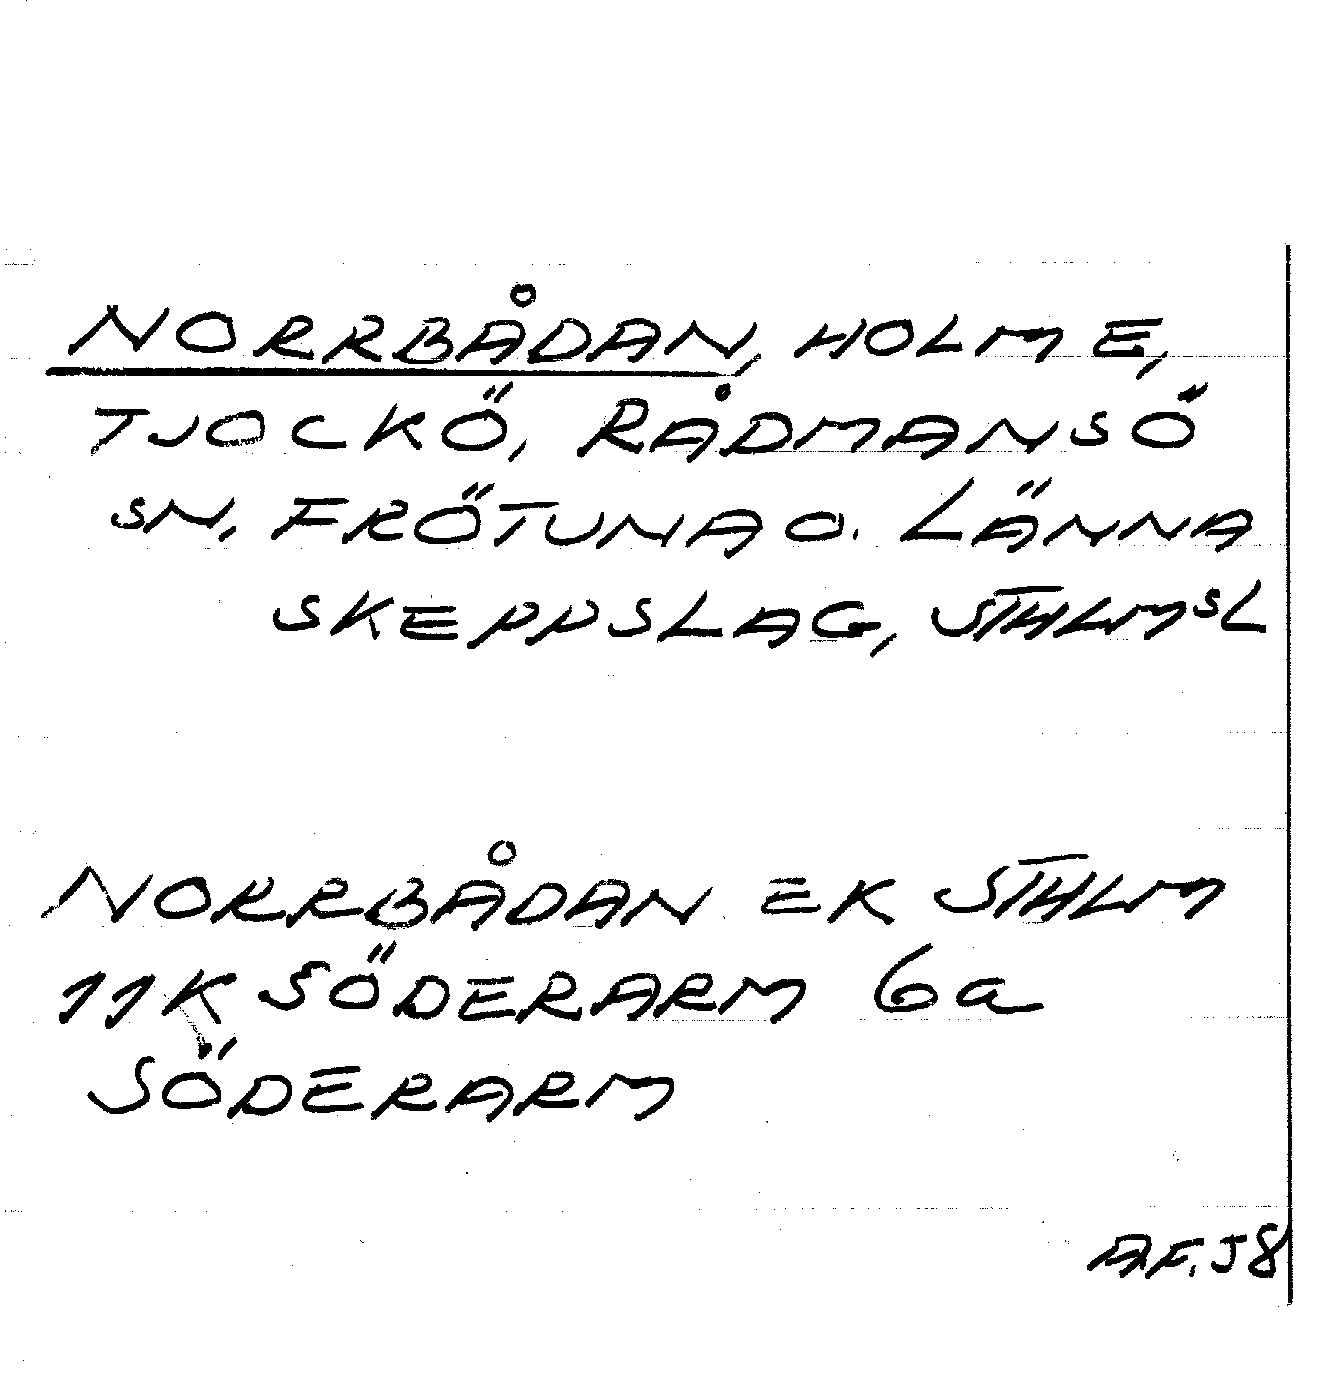 NORRBÅDAN, HOLME,
TJOCKÖ, RÅDMANSÖ
SN. FRÖTUNA O. LÄNNA
SKEPPSLAG, STHLMSL
NORRBÅDAN EK STHLM
11K SÖDERARM 6a
SÖDERARM
A.F. 58